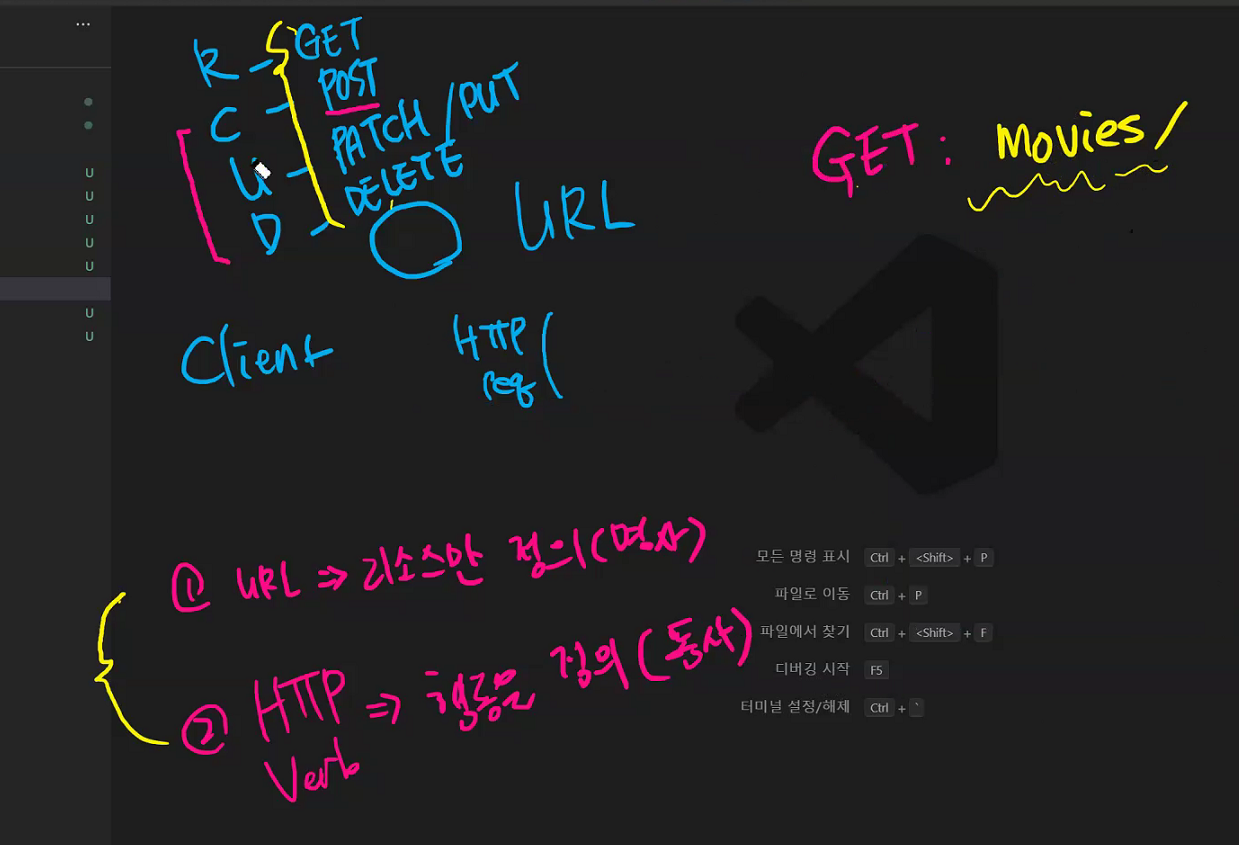 ...
R - GET
C - POST
U - PATCH / PUT
D - DELETE
URL
GET : Movies/
Client
HTTP
req (
① URL ⇒ 리소스만 정의 (명사)
② HTTP ⇒ 행동을 정의 (동사)
Verb
모든 명령 표시 Ctrl + <Shift> + P
파일로 이동 Ctrl + P
파일에서 찾기 Ctrl + <Shift> + F
디버깅 시작 F5
터미널 설정/해제 Ctrl + `
U
U
U
U
U
U
U